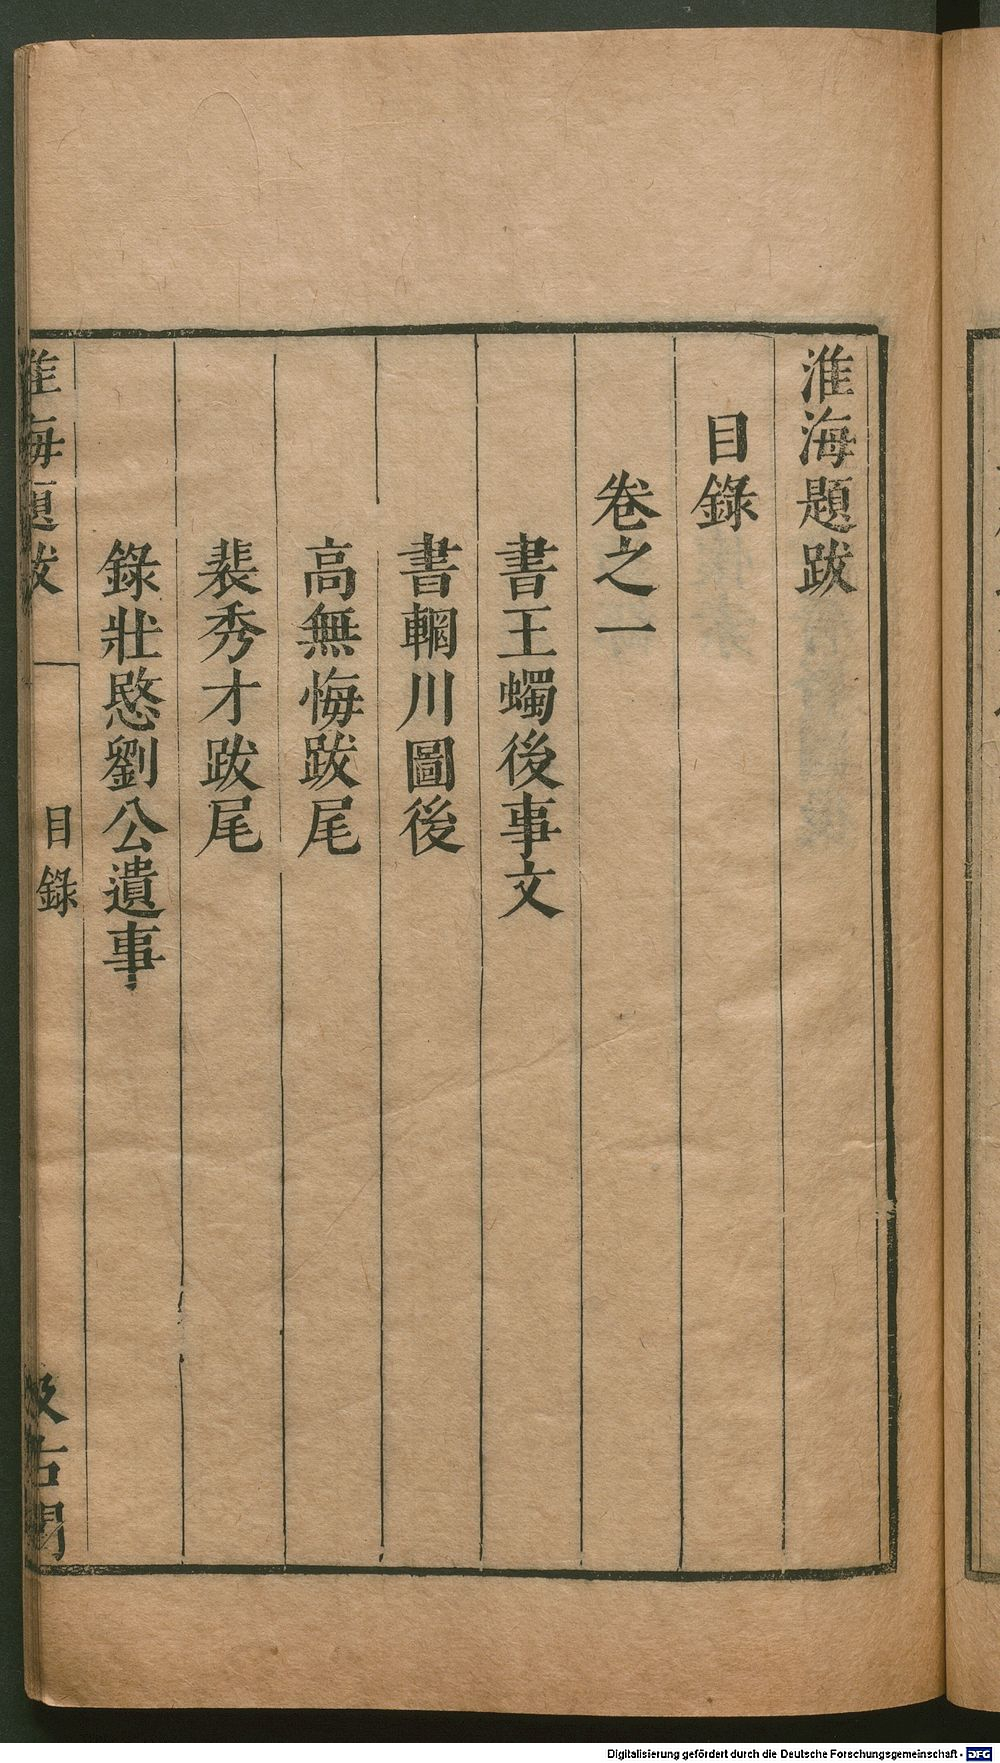 淮海題跋
目錄
卷之一
書王蠋後事文
書輞川圖後
高無悔跋尾
裴秀才跋尾
錄壯愍劉公遺事
淮海題跋
目錄
汲古閣
Digitalisierung gefördert durch die Deutsche Forschungsgemeinschaft - DFG